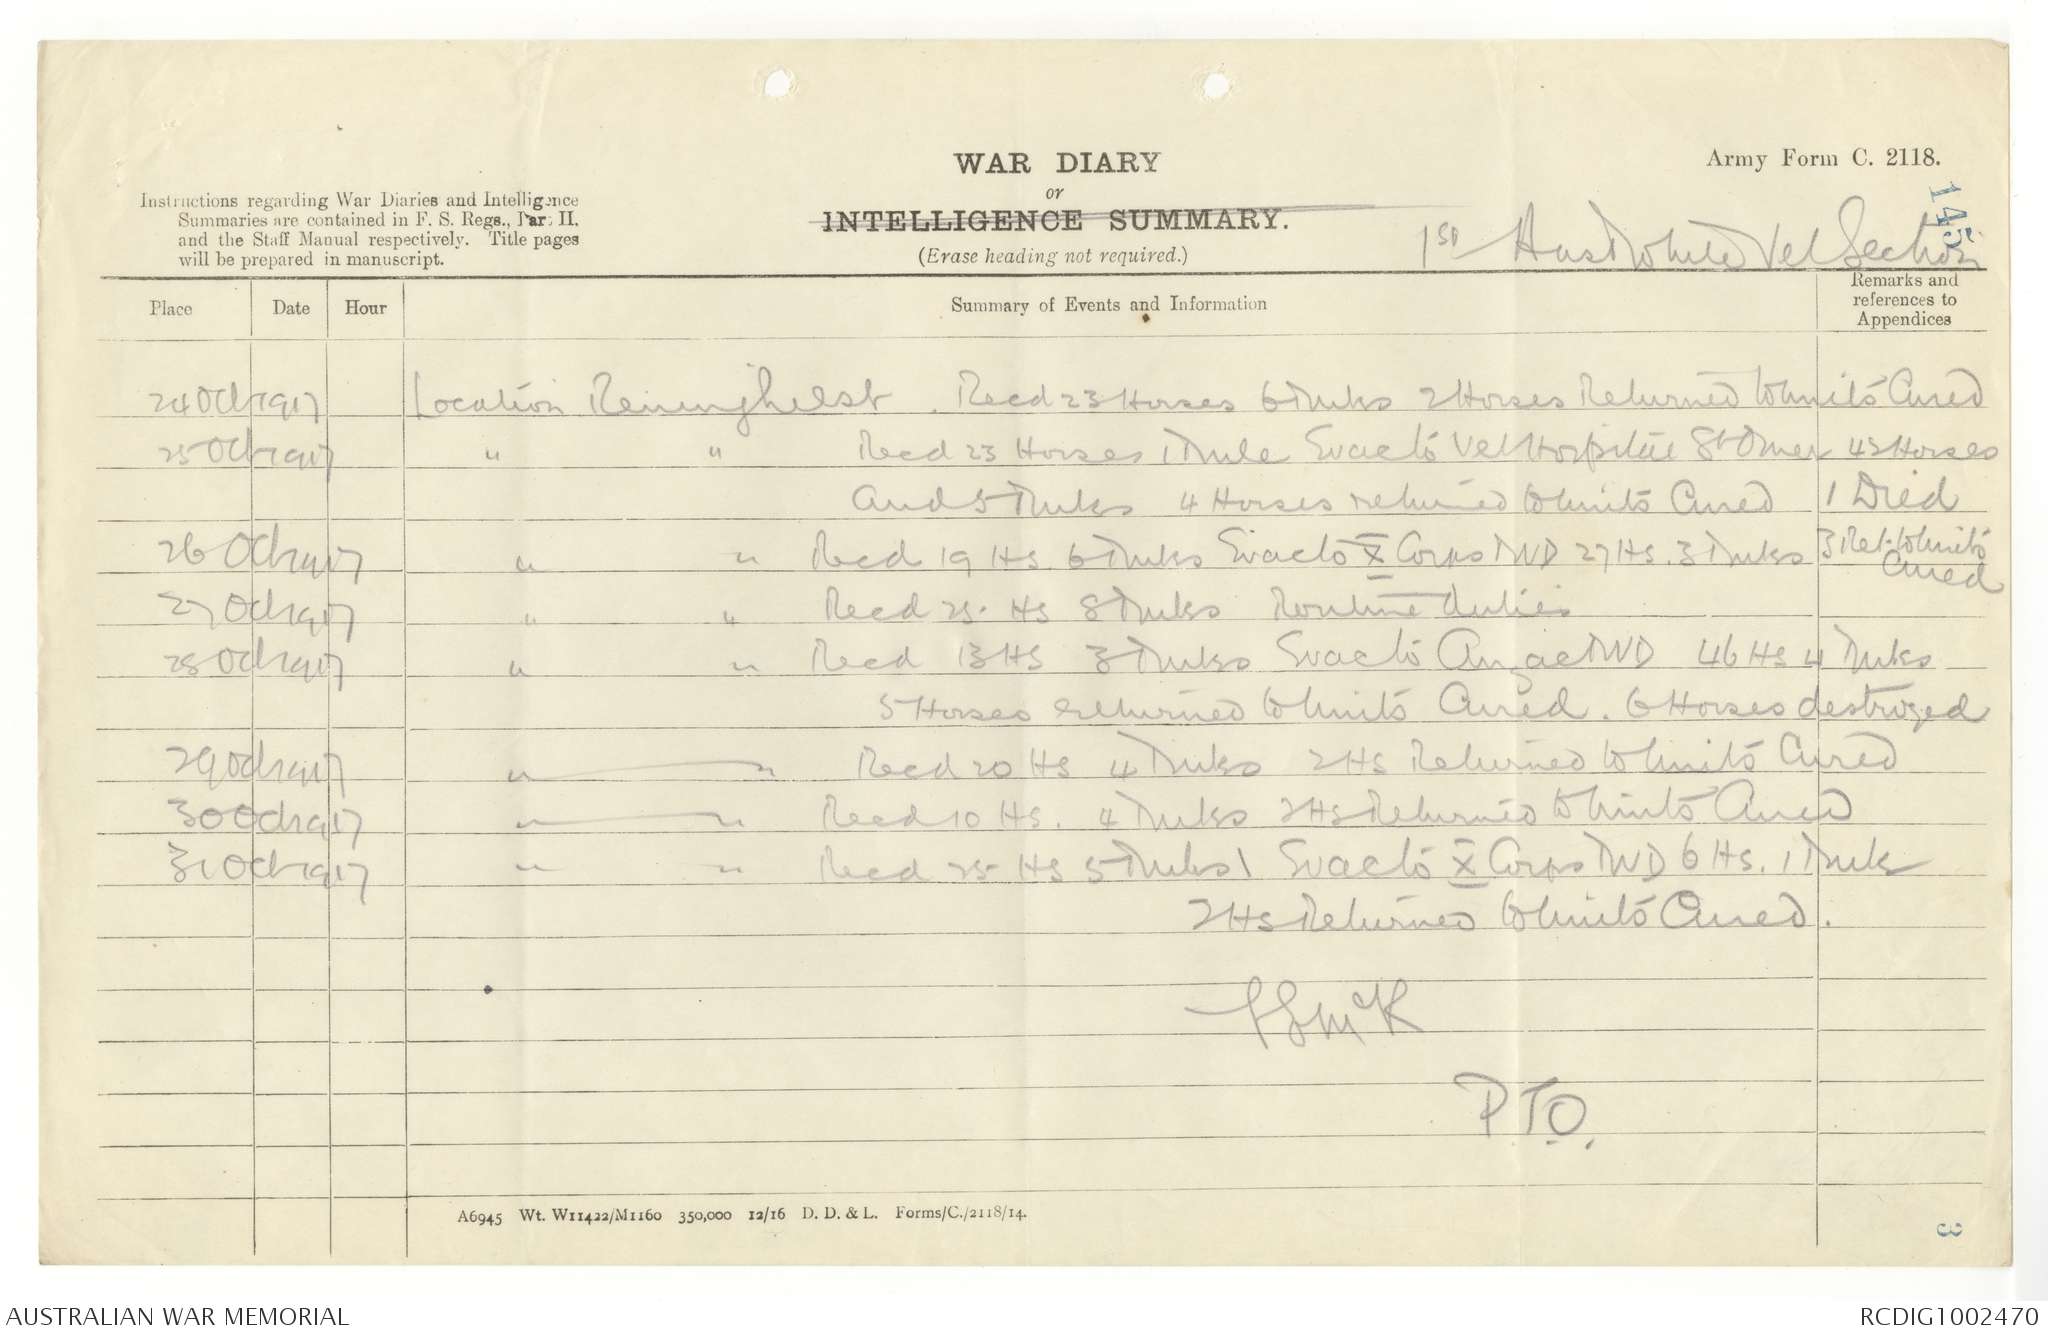 WAR DIARY
or
INTELLIGENCE SUMMARY.
(Erase heading not required.)
Army Form C. 2118.
145
Instructions regarding War Diaries and Intelligence
Summaries are contained in F. S. Regs., Part II.
and the Staff Manual respectively. Title pages
will be prepared in manuscript.
1st Aust Mobile Vet Section
Place Date Hour Summary of Events and Information Remarks and references to Appendices
24 Oct 1917 Location Reninghelst. Recd 23 Horses 6 Mules 2 Horses Returned to Units Cured
25 Oct 1917 " " Recd 23 Horses 1 Mule Evac to Vet Hospital St Omer 43 Horses
and 5 Mules 4 Horses returned to Units Cured 1 Died
26 Oct 1917 " " Recd 19 Hs. 6 Mules Evac to X Corps MVD 27 Hs. 3 Mules 3 Ret. to Units Cured
27 Oct 1917 " " Recd 25 Hs 8 Mules Routine duties
28 Oct 1917 " " Recd 13 Hs 3 Mules Evac to Anzac MVD 46 Hs 4 Mules
5 Horses returned to Units Cured. 6 Horses destroyed
29 Oct 1917 " " Recd 20 Hs 4 Mules 2 Hs Returned to Units Cured
30 Oct 1917 " " Recd 10 Hs. 4 Mules 2 Hs Returned to Units Cured
31 Oct 1917 " " Recd 25 Hs 5 Mules Evac to X Corps MVD 6 Hs. 1 Mule
2 Hs Returned to Units Cured.
PTO.
A6945 Wt. W11422/M1160 350,000 12/16 D. D. & L. Forms/C./2118/14.
3
AUSTRALIAN WAR MEMORIAL
RCDIG1002470